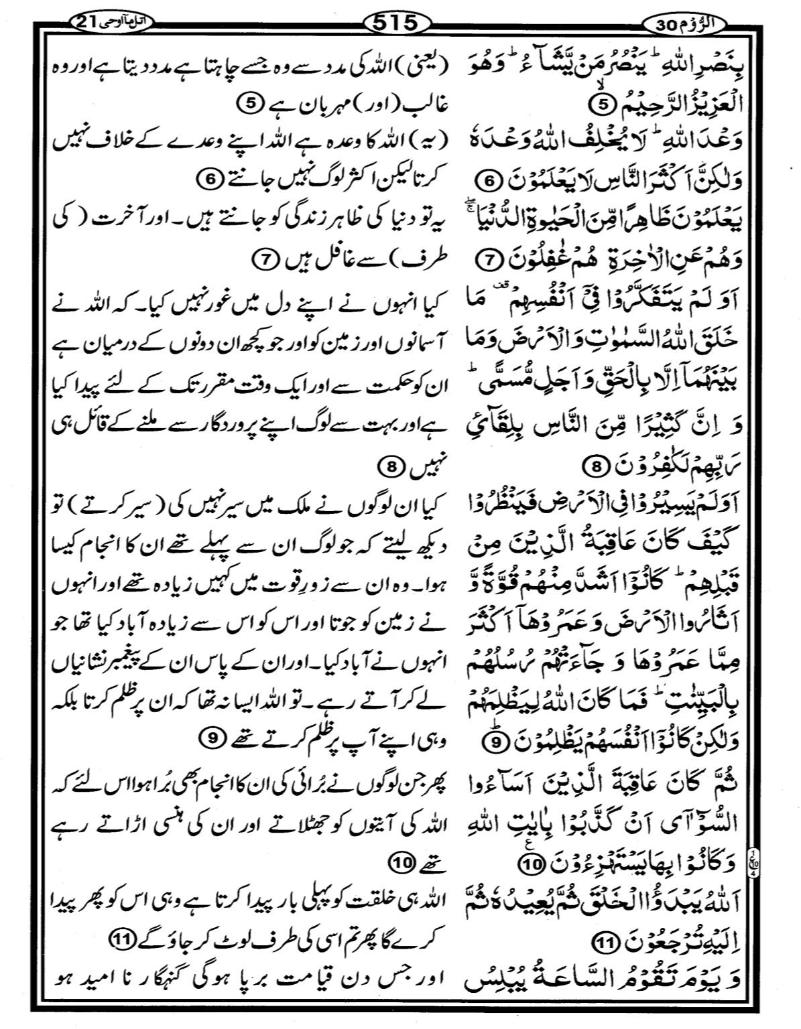 الرُّوْم 30
515
اتل ما اوحی 21
بِنَصْرِ اللّٰهِ ؕ يَنْصُرُ مَنْ يَّشَآءُ ؕ وَهُوَ
الْعَزِيْزُ الرَّحِيْمُ ۙ 5
وَعْدَ اللّٰهِ ؕ لَا يُخْلِفُ اللّٰهُ وَعْدَهٗ
وَلٰكِنَّ اَكْثَرَ النَّاسِ لَا يَعْلَمُوْنَ 6
يَعْلَمُوْنَ ظَاهِرًا مِّنَ الْحَيٰوةِ الدُّنْيَا ۖۚ
وَهُمْ عَنِ الْاٰخِرَةِ هُمْ غٰفِلُوْنَ 7
اَوَ لَمْ يَتَفَكَّرُوْا فِيْۤ اَنْفُسِهِمْ ۫ مَا
خَلَقَ اللّٰهُ السَّمٰوٰتِ وَالْاَرْضَ وَمَا
بَيْنَهُمَاۤ اِلَّا بِالْحَقِّ وَاَجَلٍ مُّسَمًّى ؕ
وَ اِنَّ كَثِيْرًا مِّنَ النَّاسِ بِلِقَآئِ
رَبِّهِمْ لَكٰفِرُوْنَ 8
اَوَلَمْ يَسِيْرُوْا فِى الْاَرْضِ فَيَنْظُرُوْا
كَيْفَ كَانَ عَاقِبَةُ الَّذِيْنَ مِنْ
قَبْلِهِمْ ؕ كَانُوْۤا اَشَدَّ مِنْهُمْ قُوَّةً وَّ
اَثَارُوا الْاَرْضَ وَعَمَرُوْهَاۤ اَكْثَرَ
مِمَّا عَمَرُوْهَا وَ جَآءَتْهُمْ رُسُلُهُمْ
بِالْبَيِّنٰتِ ؕ فَمَا كَانَ اللّٰهُ لِيَظْلِمَهُمْ
وَلٰكِنْ كَانُوْۤا اَنْفُسَهُمْ يَظْلِمُوْنَ ؕ 9
ثُمَّ كَانَ عَاقِبَةَ الَّذِيْنَ اَسَآءُوا
السُّوْٓاٰۤى اَنْ كَذَّبُوْا بِاٰيٰتِ اللّٰهِ
وَكَانُوْا بِهَا يَسْتَهْزِءُوْنَ ع 10
اَللّٰهُ يَبْدَؤُا الْخَلْقَ ثُمَّ يُعِيْدُهٗ ثُمَّ
اِلَيْهِ تُرْجَعُوْنَ 11
وَ يَوْمَ تَقُوْمُ السَّاعَةُ يُبْلِسُ
(یعنی) اللہ کی مدد سے وہ جسے چاہتا ہے مدد دیتا ہے اور وہ
غالب (اور) مہربان ہے 5
(یہ) اللہ کا وعدہ ہے اللہ اپنے وعدے کے خلاف نہیں
کرتا لیکن اکثر لوگ نہیں جانتے 6
یہ تو دنیا کی ظاہر زندگی کو جانتے ہیں۔ اور آخرت (کی
طرف) سے غافل ہیں 7
کیا انہوں نے اپنے دل میں غور نہیں کیا۔ کہ اللہ نے
آسمانوں اور زمین کو اور جو کچھ ان دونوں کے درمیان ہے
ان کو حکمت سے اور ایک وقت مقرر تک کے لئے پیدا کیا
ہے اور بہت سے لوگ اپنے پروردگار سے ملنے کے قائل ہی
نہیں 8
کیا ان لوگوں نے ملک میں سیر نہیں کی (سیر کرتے) تو
دیکھ لیتے کہ جو لوگ ان سے پہلے تھے ان کا انجام کیسا
ہوا۔ وہ ان سے زورِ قوت میں کہیں زیادہ تھے اور انہوں
نے زمین کو جوتا اور اس کو اس سے زیادہ آباد کیا تھا جو
انہوں نے آباد کیا۔ اور ان کے پاس ان کے پیغمبر نشانیاں
لے کر آتے رہے۔ تو اللہ ایسا نہ تھا کہ ان پر ظلم کرتا بلکہ
وہی اپنے آپ پر ظلم کرتے تھے 9
پھر جن لوگوں نے بُرائی کی ان کا انجام بھی بُرا ہوا اس لئے کہ
اللہ کی آیتوں کو جھٹلاتے اور ان کی ہنسی اڑاتے رہے
تھے 10
اللہ ہی خلقت کو پہلی بار پیدا کرتا ہے وہی اس کو پھر پیدا
کرے گا پھر تم اسی کی طرف لوٹ کر جاؤ گے 11
اور جس دن قیامت برپا ہوگی گنہگار نا امید ہو